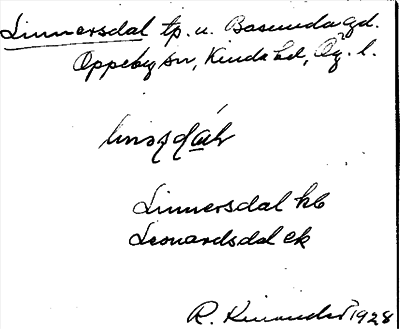 Linnersdal tp. u. Basundagd.
Oppeby sn, Kinda hd, Ög. l.
Linnersdal hb
Leonardsdal ek
R. Kinander 1928